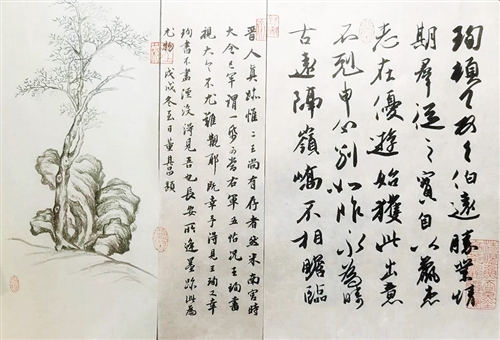 珣頓首頓首伯遠勝業情
期羣從之寶自以羸患
志在優遊始獲此出意
不剋申分別如昨永為疇
古遠隔嶺嶠不相瞻臨
晉人真跡惟二王尚有存者然米南宮時
大令已罕謂一紙可當右軍五帖況王珣書
視大令不尤難覯耶既幸予得見王珣又幸
珣書不盡湮沒得見吾也長安所逢墨跡此為
尤物戊戌冬至日董其昌題